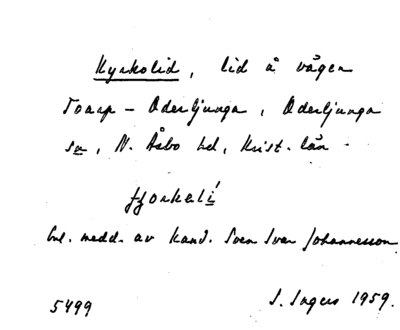 Kyrkolid, lid å vägen
Toarp - Oderljunga, Oderljunga
sn, N. Åsbo hd, Krist. län.
fjorkalí
Enl. medd. av kand. Sven Ivar Johannesson
S. Ingers 1959.
5499